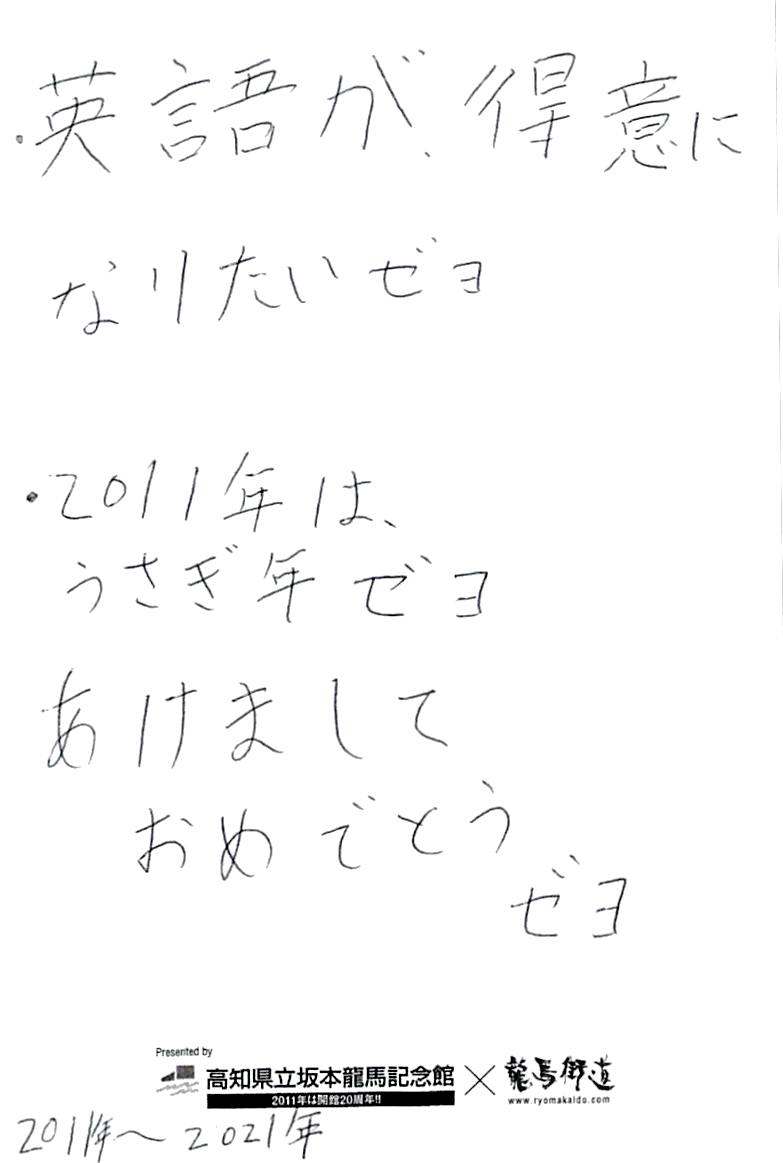 ・英語が、得意に
なりたいゼヨ
・2011年は、
うさぎ年ゼヨ
あけまして
おめでとう
ゼヨ
Presented by
高知県立坂本龍馬記念館
2011年は開館20周年!!
×
龍馬街道
www.ryomakaido.com
2011年～2021年